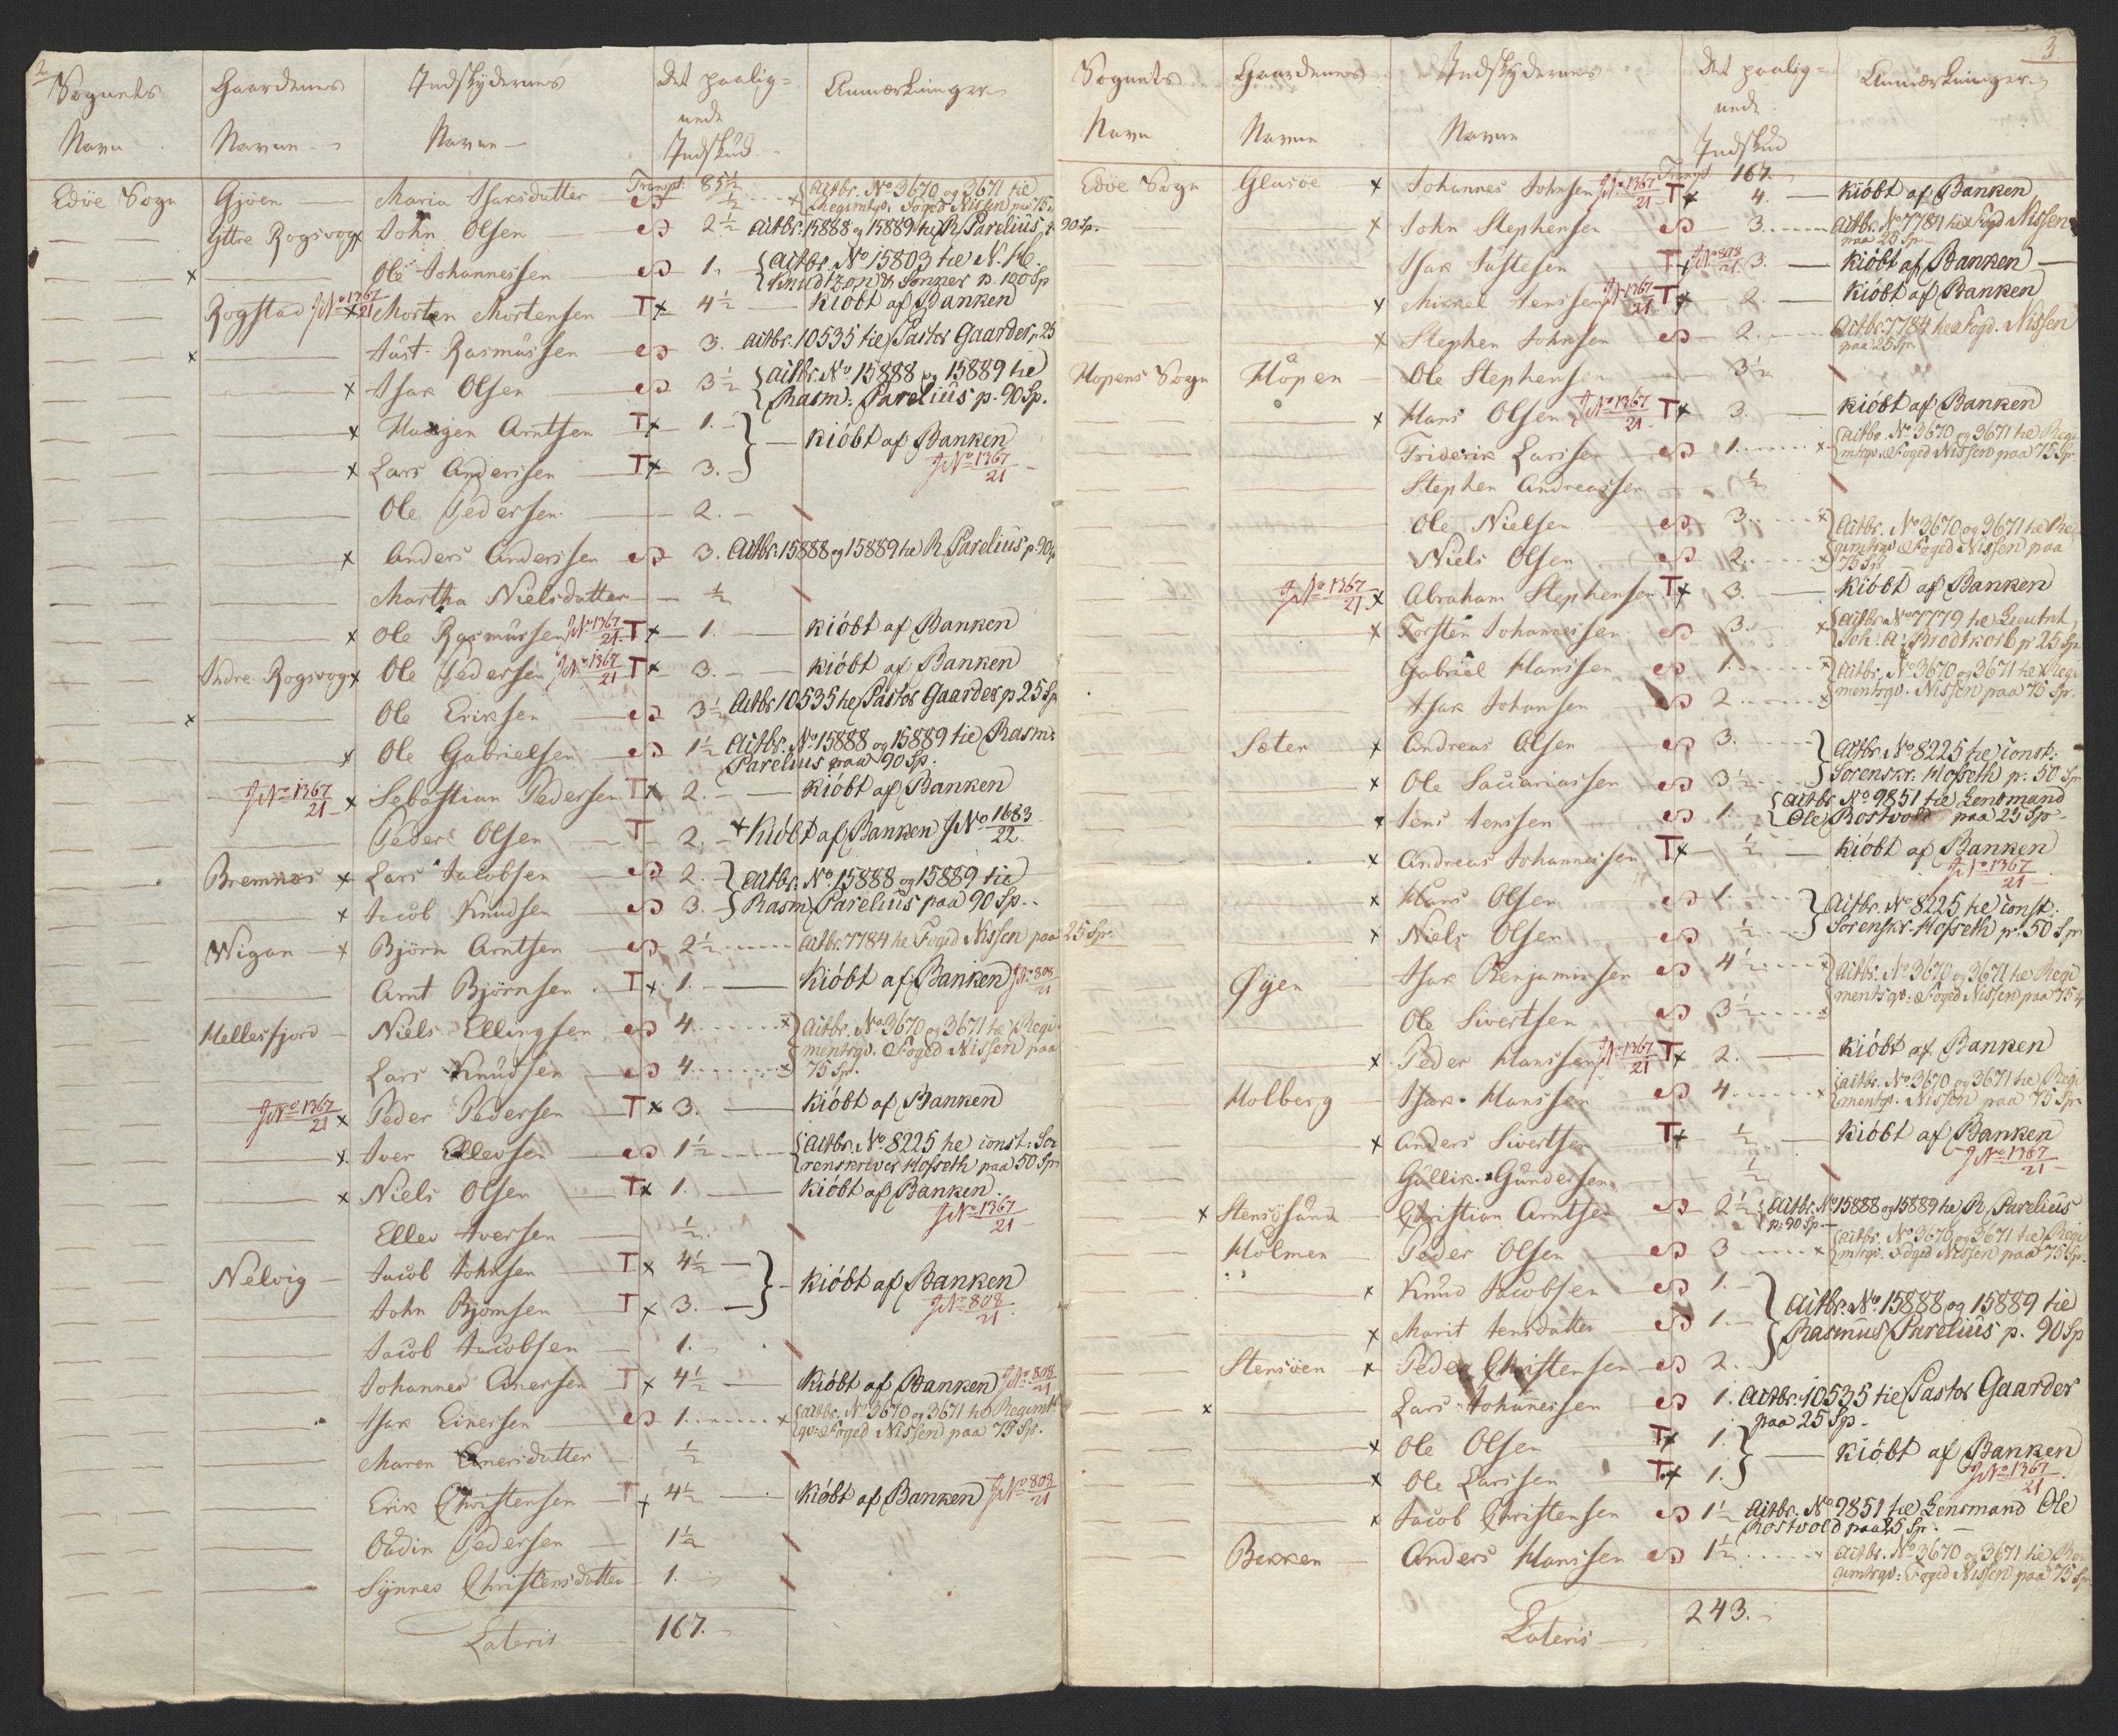 2
Sognets Navn | Gaardenes Navne | Indskydernes Navne | Det paalignede Indskud | Anmærkninger
Transpt: 85 1/2
Edöe Sogn | Gjöen | Maria Isaksdatter | 1/2 | Actbr. No 3670 og 3671 til Regimtsqv. Foged Nissen paa 75 Sp
Yttre Rogsvog x | John Olsen | 2 1/2 | Actbr. 15888 og 15889 til R. Parelius, p 90 Sp.
x | Ole Johannessen | 1. | Actbr. No 15803 til N. H. Knudtzon & Sönner p. 100 Sp
Rogstad | J No 1367/21 x | Morten Mortensen | T x | 4 1/2 | kióbt af Banken
x | Just Rasmussen | 3. | actbr. 10535 til Pastor Gaarder p 25
x | Isak Olsen | 3 1/2 | Actbr. No 15888 og 15889 til Rasm: Parelius p. 90 Sp.
x | Haagen Arntsen | T x | 1. | kióbt af Banken
x | Lars Anderssen | T x | 3. | J No 1367/21
Ole Pedersen | 2.
x | Anders Anderssen | 3. | Actbr. 15888 og 15889 til R. Parelius p. 90
Martha Nielsdatter | 1/2
x | Ole Rasmussen | J No 1367/21 | T x | 1. | kióbt af Banken
Indre Rogsvog x | Ole Pedersen | J No 1367/21 | T x | 3. | kióbt af Banken
x | Ole Eriksen | 3 1/2 | Actbr 10535 til Pastor Gaarder p 25 Sp
x | Ole Gabrielsen | 1 1/2 | Actbr. No 15888 og 15889 til Rasm: Parelius paa 90 Sp.
J No 1367/21 x | Sebastian Pedersen | T x | 2. | kióbt af Banken
Peder Olsen | T | 2. | x Kióbt af Banken J No 1683/22
Bremnæs x | Lars Jacobsen | 2. | Actbr. No 15888 og 15889 til
x | Jacob Knudsen | 3. | Rasm. Parelius paa 90 Sp.
Wigan x | Björn Arntsen | 2 1/2 | Actbr. 7784 til Foged Nissen paa 25 Sp.
Arnt Björnsen | T x | 1. | Kióbt af Banken J No 808/21
Hellesfjord | Niels Ellingsen | 4. x | Actbr. No 3670 og 3671 til Regimentsqv. Foged Nissen paa
Lars Knudsen | 4. x | 75 Sp.
J No 1367/21 x | Peder Pedersen | T x | 3. | kióbt af Banken
x | Iver Ellevsen | 1 1/2 | Actbr. No 8225 til const: Sorenskriver Hofseth paa 50 Sp
x | Niels Olsen | T x | 1. | kióbt af Banken J No 1367/21
Ellev Iversen | 1/2
Nelvig | Jacob Johnsen | T x | 4 1/2 | kióbt af Banken
John Björnsen | T x | 3. | J No 808/21
Jacob Jacobsen | 1.
Johannes Einersen | T x | 4 1/2 | Kióbt af Banken J No 808/21
Isak Einersen | 1. x | Actbr. No 3670 og 3671 til Regimts qv: Foged Nissen paa 75 Sp.
Maren Einersdatter | 1/2
Erik Christensen | T x | 4 1/2 | Kióbt af Banken J No 808/21
Oudin Pedersen | 1 1/2
Synnes Christensdatter | 1.
Lateris | 167.
3
Sognets Navn | Gaardenes Navne | Indskydernes Navne | Det paalignede Indskud | Anmærkninger
Transpt 167.
Edöe Sogn | Glasöe x | Johannes Johnsen | J No 1367/21 | T x | 4. | kióbt af Banken
x | John Stephensen | 3. | Actbr. No 7784 til Fogd Nissen paa 25 Sp
Isak Justesen | T x | J No 808/21 | 3. | kióbt af Banken
x | Mikkel Jenssen | J No 1367/21 | T x | 2. | kióbt af Banken
x | Stephen Johnsen | 2. | Actbr. 7784 til Fogd. Nissen paa 25 Sp.
Hopens Sogn | Håpen | Ole Stephensen | 3 1/2
x | Hans Olsen | J No 1367/21 | T x | 3. | kióbt af Banken
Friderik Larssen | 1. x | Actbr. No 3670 og 3671 til Regimtsqv. Foged Nissen paa 75 Sp.
Stephen Andreassen | 1/2
Ole Nielsen | 3. x | Actbr. No 3670 og 3671 til Regimtsqv. Foged Nissen paa
Niels Olsen | 2. x | 75 Sp.
J No 1367/21 x | Abraham Stephensen | T x | 3. | kióbt af Banken
x | Torsten Johannessen | 3. x | Actbr. No 7779 til Lieutnt, Joh: A: Brodtkorb p: 25 Sp.
Gabriel Hanssen | 1. x | Actbr. No 3670 og 3671 til Regi
Isak Johansen | 2. x | mentsqv. Nissen paa 75 Sp.
Sæter x | Andreas Olsen | 3. | Actbr. No 8225 til const:
x | Ole Sacariassen | 3 1/2 | Sorenskr. Hofseth p: 50 Sp
x | Jens Jenssen | 1. | Actbr. No 9851 til Lensmand Ole Rostvold paa 25 Sp.
x | Andreas Johannessen | T x | 1/2 | kióbt af Banken J No 1367/21
x | Hans Olsen | 1. | Actbr. No 8225 til const:
x | Niels Olsen | 1/2 | Sorenskr. Hofseth p: 50 Sp
Öyen | Isak Benjaminsen | 4 1/2 x | Actbr. No 3670 og 3671 til Regi
Ole Sivertsen | 3 1/2 x | mentsqv: Foged Nissen paa 75 Sp
x | Peder Hanssen | J No 1367/21 | T x | 2. | kióbt af Banken
Holberg | Isak Hanssen | 4. x | Actbr. No 3670 og 3671 til Regimentsq. Nissen paa 75 Sp.
x | Anders Sivertsen | T x | 1/2 | kióbt af Banken J No 1367/21
Gullik Gundersen | 1/2
x | Stensösund | Christian Arntsen | 2 1/2 | Actbr. No 15888 og 15889 til R. Parelius p. 90 Sp
Holmen | Peder Olsen | 3 x | Actbr. No 3670 og 3671 til Regimtsqv. Foged Nissen paa 75 Sp.
x | Knud Jacobsen | 1. | Actbr. No 15888 og 15889 til
x | Marit Jensdatter | 1. | Rasmus Parelius p. 90 Sp
Stensöen x | Peder Christensen | 2.
x | Lars Johannessen | 1. | Actbr. 10535 til Pastor Gaarder paa 25 Sp.
x | Ole Olsen | T x | 1. | kióbt af Banken
x | Ole Larssen | T x | 1. | J No 1367/21
x | Jacob Christensen | 1 1/2 | Actbr. No 9851 til Lensmand Ole Rostvold paa 25 Sp.
Bekken | Anders Hanssen | 1 1/2 x | Actbr. No 3670 og 3671 til Regimtsqv: Foged Nissen paa 75 Sp
Lateris | 243.